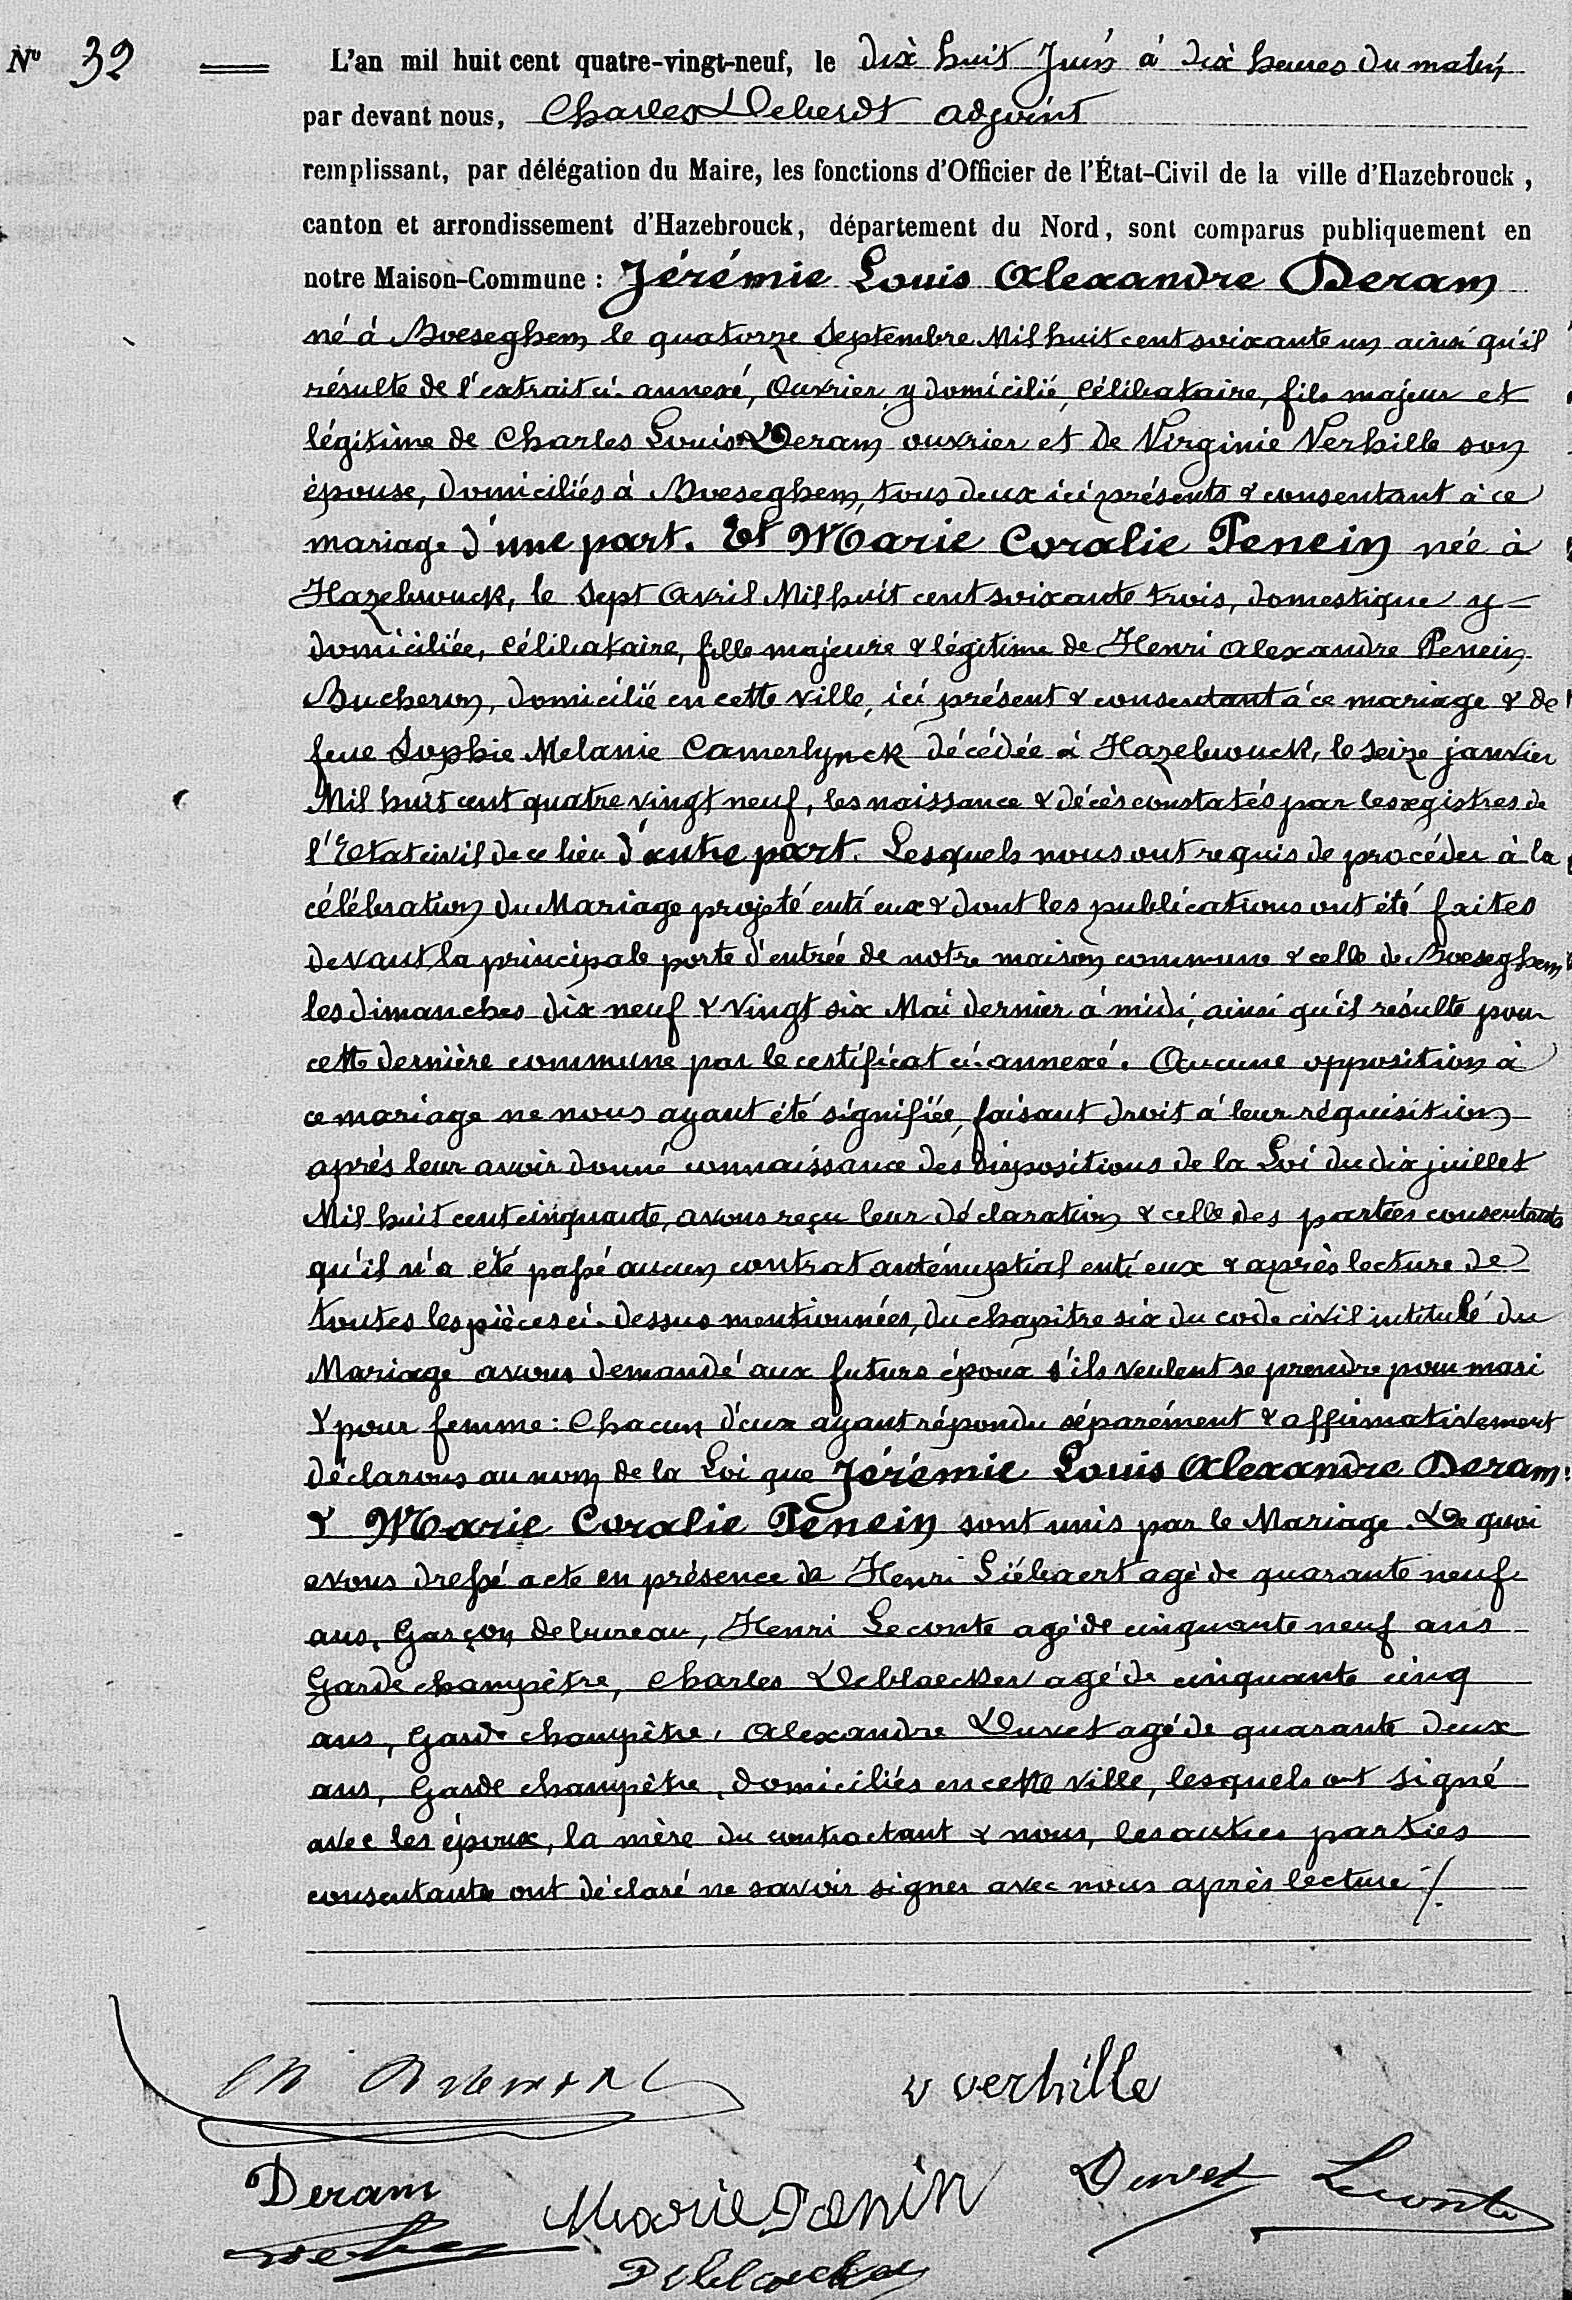 N° 32 L'an mil huit cent quatre-vingt-neuf, le dix huit Juin à dix heures du matin
par devant nous, Charles Deberdt adjoint
remplissant, par délégation du Maire, les fonctions d'Officier de l'État-Civil de la ville d'Hazebrouck,
canton et arrondissement d'Hazebrouck, département du Nord, sont comparus publiquement en
notre Maison-Commune : Jérémie Louis Alexandre Deram
né à Boeseghem le quatorze Septembre Mil huit cent soixante un ainsi qu'il
résulte de l'extrait ci-annexé, Ouvrier, y domicilié, célibataire, fils majeur et
légitime de Charles Louis Deram ouvrier et de Virginie Verhille son
épouse, domiciliés à Boeseghem, tous deux ici présents & consentant à ce
mariage d'une part. Et Marie Coralie Penein née à
Hazebrouck, le sept Avril Mil huit cent soixante trois, domestique y
domiciliée, célibataire, fille majeure & légitime de Henri Alexandre Penein
Bucheron, domicilié en cette ville, ici présent & consentant à ce mariage & de
feue Sophie Mélanie Camerlynck décédée à Hazebrouck, le seize janvier
Mil huit cent quatre vingt neuf, les naissance & décès constatés par les registres de
l'Etat civil de ce lieu d'autre part. Lesquels nous ont requis de procéder à la
célébration du Mariage projeté entr'eux & dont les publications ont été faites
devant la principale porte d'entrée de notre maison commune & celle de Boeseghem
les dimanches dix neuf & vingt six Mai dernier à midi, ainsi qu'il résulte pour
cette dernière commune par le certificat ci-annexé. Aucune opposition à
ce mariage ne nous ayant été signifiée, faisant droit à leur réquisition
après leur avoir donné connaissance des dispositions de la Loi du dix juillet
Mil huit cent cinquante, avons reçu leur déclaration & celle des parties consentantes
qu'il n'a été passé aucun contrat anténuptial entr'eux & après lecture de
toutes les pièces ci-dessus mentionnées, du chapitre six du code civil intitulé du
Mariage avons demandé aux futurs époux s'ils veulent se prendre pour mari
& pour femme : Chacun d'eux ayant répondu séparément & affirmativement
déclarons au nom de la Loi que Jérémie Louis Alexandre Deram
& Marie Coralie Penein sont unis par le Mariage. De quoi
avons dressé acte en présence de Henri Liébaert agé de quarante neuf
ans, Garçon de bureau, Henri Leconte agé de cinquante neuf ans
Garde champêtre, Charles Deblaecker agé de cinquante cinq
ans, Garde champêtre, Alexandre Duvet agé de quarante deux
ans, Garde champêtre, domiciliés en cette ville, lesquels ont signé
avec les époux, la mère du contractant & nous, les autres parties
consentantes ont déclaré ne savoir signer avec nous après lecture ./.
v verhille
Deram Marie Penin Duvet Leconte
Deblaecker